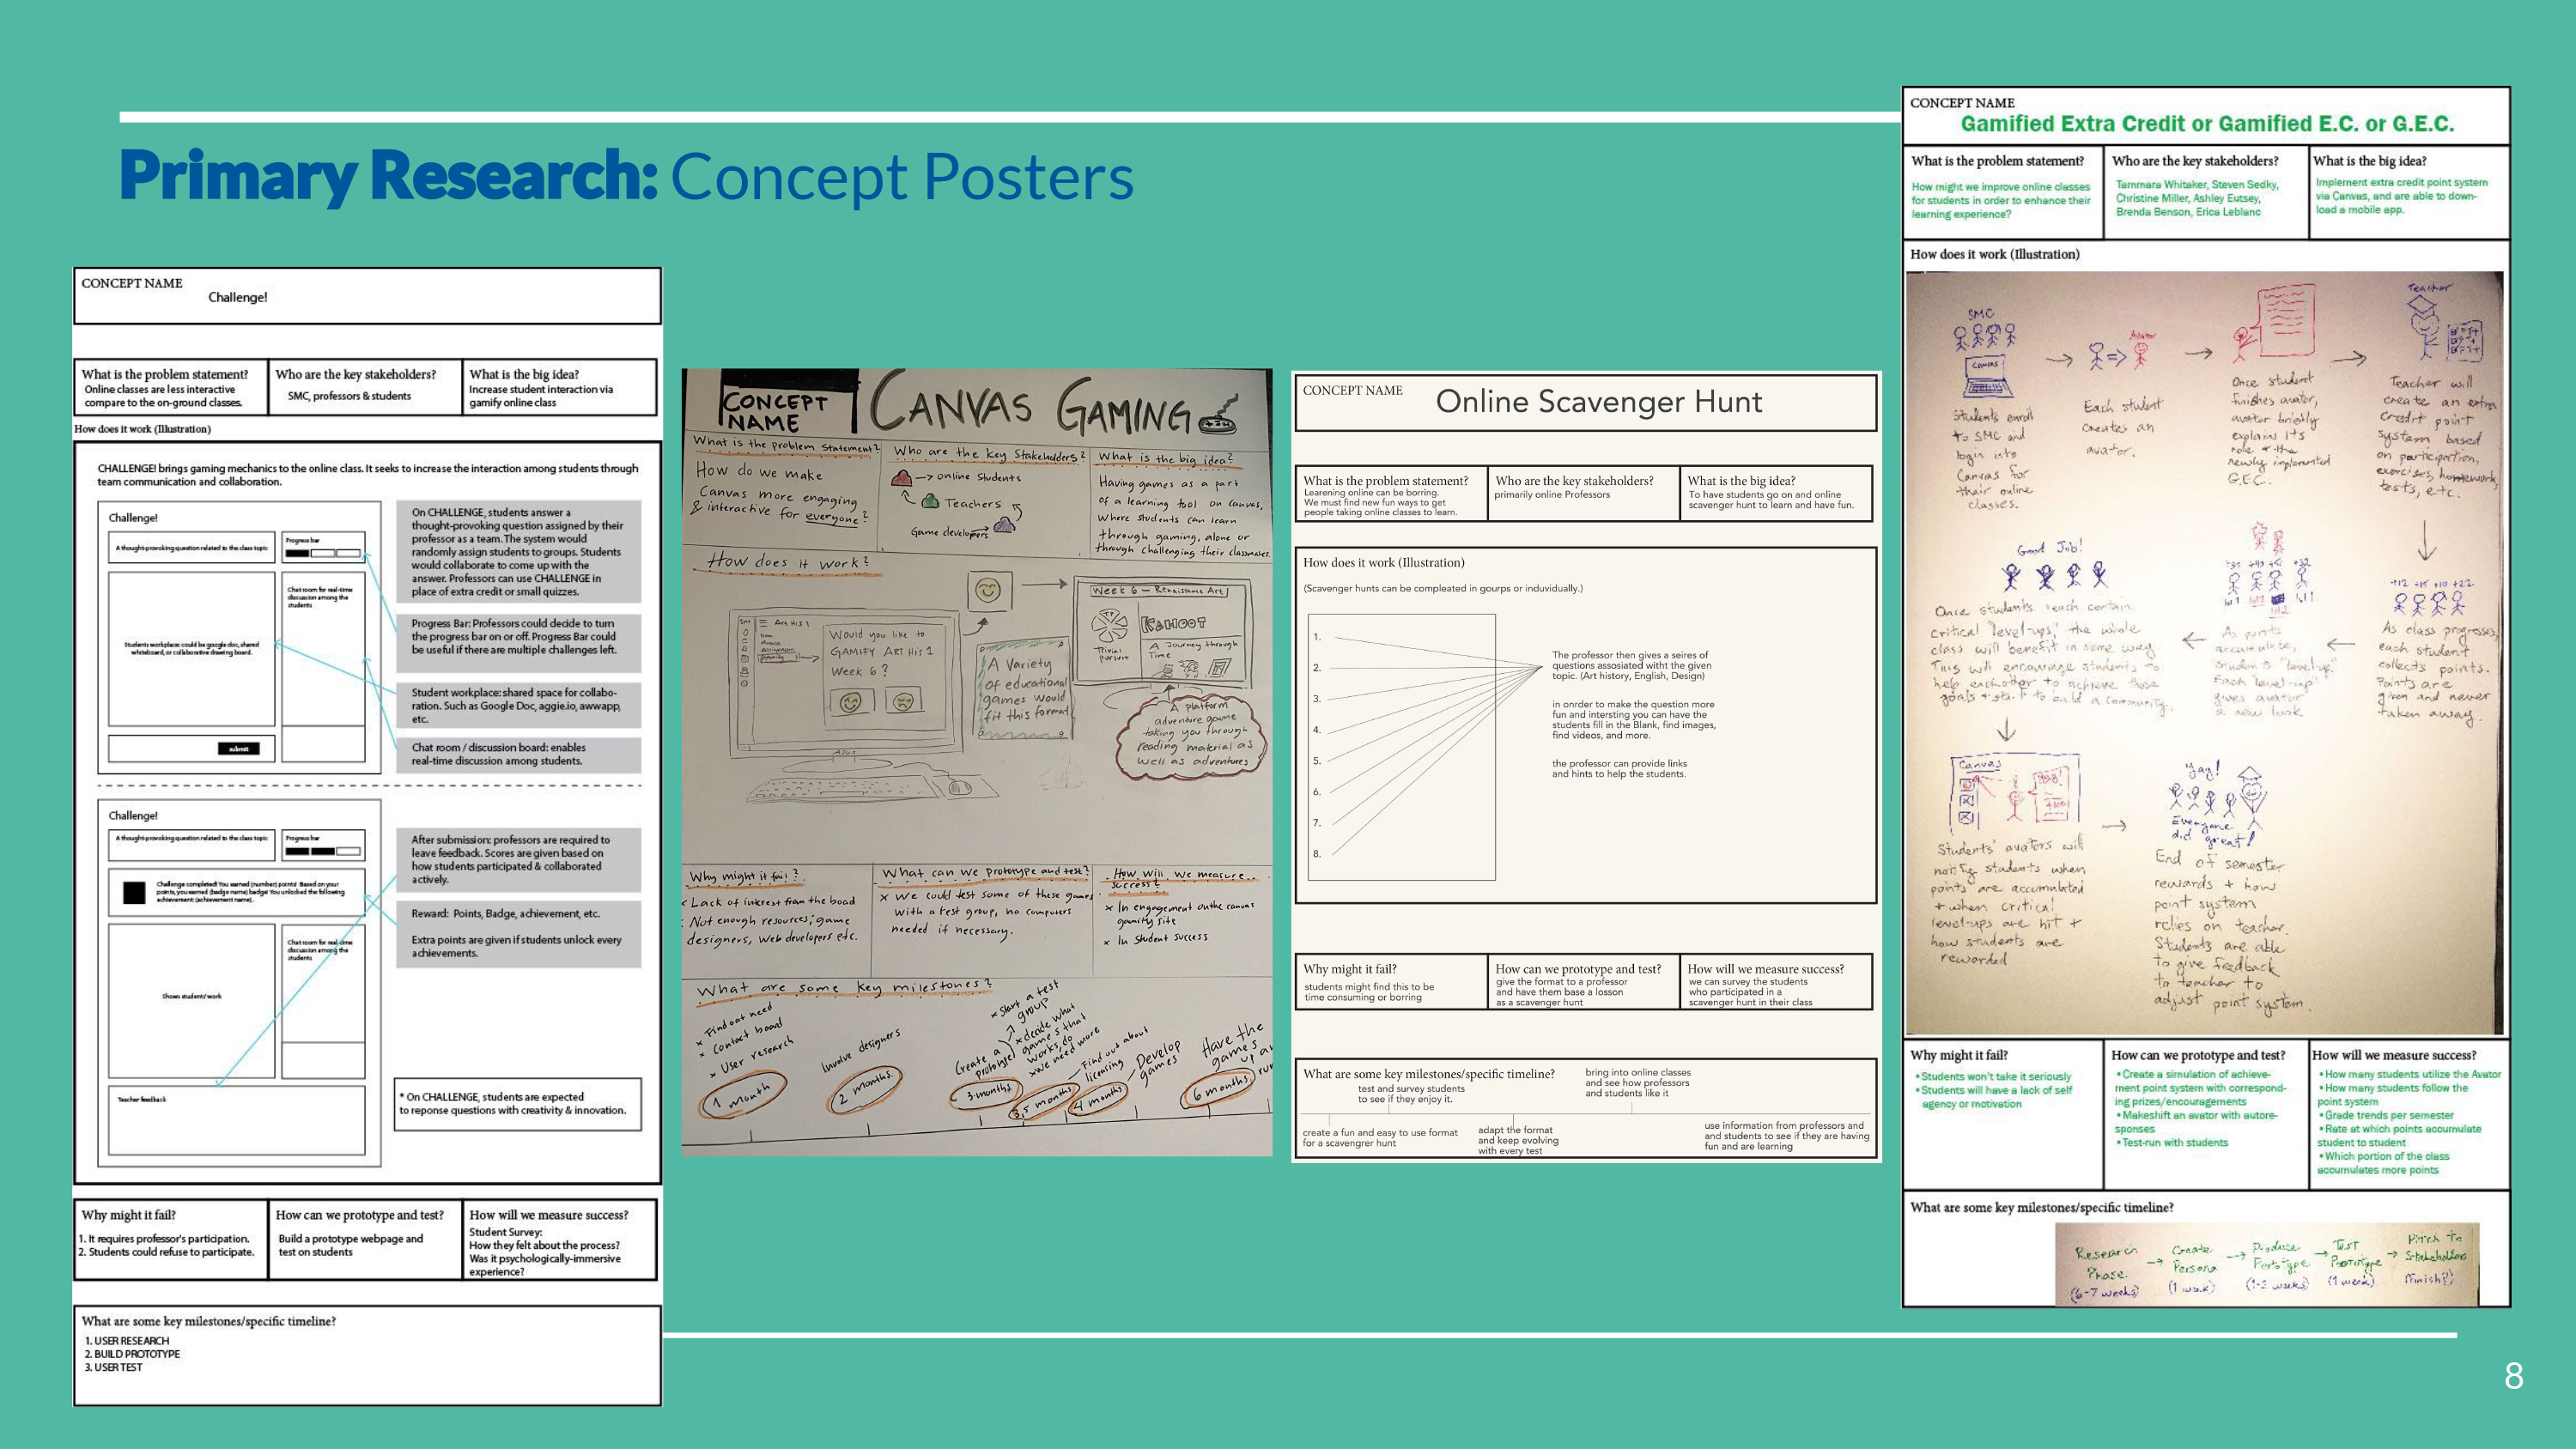 Primary Research: Concept Posters
CONCEPT NAME
Challenge!
What is the problem statement?
Online classes are less interactive
compare to the on-ground classes.
Who are the key stakeholders?
SMC, professors & students
What is the big idea?
Increase student interaction via
gamify online class
How does it work (Illustration)
CHALLENGE! brings gaming mechanics to the online class. It seeks to increase the interaction among students through
team communication and collaboration.
Challenge!
A thought-provoking question related to the class topic
Progress bar
Chat room for real-time
discussion among the
students
Students workplace could be google doc, shared
whiteboard, or collaborative drawing board.
submit
On CHALLENGE, students answer a
thought-provoking question assigned by their
professor as a team. The system would
randomly assign students to groups. Students
would collaborate to come up with the
answer. Professors can use CHALLENGE in
place of extra credit or small quizzes.
Progress Bar: Professors could decide to turn
the progress bar on or off. Progress Bar could
be useful if there are multiple challenges left.
Student workplace: shared space for collabo-
ration. Such as Google Doc, aggie.io, awwapp,
etc.
Chat room / discussion board: enables
real-time discussion among students.
Challenge!
A thought-provoking question related to the class topic
Progress bar
Challenge completed! You earned (number) points! Based on your
points, you earned (badge name) badge! You unlocked the following
achievement: (achievement name).
Chat room for real-time
discussion among the
students
Shows students' work
Teacher feedback
After submission: professors are required to
leave feedback. Scores are given based on
how students participated & collaborated
actively.
Reward: Points, Badge, achievement, etc.
Extra points are given if students unlock every
achievements.
* On CHALLENGE, students are expected
to reponse questions with creativity & innovation.
Why might it fail?
1. It requires professor's participation.
2. Students could refuse to participate.
How can we prototype and test?
Build a prototype webpage and
test on students
How will we measure success?
Student Survey:
How they felt about the process?
Was it psychologically-immersive
experience?
What are some key milestones/specific timeline?
1. USER RESEARCH
2. BUILD PROTOTYPE
3. USER TEST
CONCEPT
NAME
CANVAS GAMING
What is the problem statement?
How do we make
Canvas more engaging
& interactive for everyone?
Who are the key Stakeholders?
→ online Students
Teachers
Game developers
What is the big idea?
Having games as a part
of a learning tool on Canvas,
where students can learn
through gaming, alone or
through challenging their classmates.
How does it work?
Art His 1
Would you like to
GAMIFY ART HIS 1
Week 6?
A Variety
of educational
games would
fit this format
Week 6 - Renaissance Art
KAHOOT
Trivial
pursuit
A Journey through
Time
A platform
adventure game
taking you through
reading material as
well as adventures
Why might it fail?
Lack of interest from the board
Not enough resources, game
designers, web developers etc.
What can we prototype and test?
x we could test some of these games
with a test group, no computers
needed if necessary.
How will we measure
success?
x In engagement on the canvas
gamify site
x In Student Success
What are some key milestones?
x Find out need
x Contact board
x User research
1 month
Involve designers
2 months
Create a
prototype
x Start a test
group
x decide what
games that
works, do
we need more
3 months
3,5 months
Find out about
licensing
4 months
Develop
games
Have the
games
up a
run
6 months
CONCEPT NAME
Online Scavenger Hunt
What is the problem statement?
Learening online can be borring.
We must find new fun ways to get
people taking online classes to learn.
Who are the key stakeholders?
primarily online Professors
What is the big idea?
To have students go on and online
scavenger hunt to learn and have fun.
How does it work (Illustration)
(Scavenger hunts can be compleated in gourps or induvidually.)
1.
2.
3.
4.
5.
6.
7.
8.
The professor then gives a seires of
questions assosiated witht the given
topic. (Art history, English, Design)
in onrder to make the question more
fun and intersting you can have the
students fill in the Blank, find images,
find videos, and more.
the professor can provide links
and hints to help the students.
Why might it fail?
students might find this to be
time consuming or borring
How can we prototype and test?
give the format to a professor
and have them base a losson
as a scavenger hunt
How will we measure success?
we can survey the students
who participated in a
scavenger hunt in their class
What are some key milestones/specific timeline?
test and survey students
to see if they enjoy it.
bring into online classes
and see how professors
and students like it
create a fun and easy to use format
for a scavengrer hunt
adapt the format
and keep evolving
with every test
use information from professors and
and students to see if they are having
fun and are learning
CONCEPT NAME
Gamified Extra Credit or Gamified E.C. or G.E.C.
What is the problem statement?
How might we improve online classes
for students in order to enhance their
learning experience?
Who are the key stakeholders?
Tammara Whitaker, Steven Sedky,
Christine Miller, Ashley Eutsey,
Brenda Benson, Erica Leblanc
What is the big idea?
Implement extra credit point system
via Canvas, and are able to down-
load a mobile app.
How does it work (Illustration)
SMC
Canvas
Students enroll
to SMC and
login into
Canvas for
their online
classes.
Avatar
Each student
creates an
avatar.
Once student
finishes avatar,
avatar briefly
explains it's
role & the
newly implemented
G.E.C.
Teacher
Teacher will
create an extra
credit point
system based
on participation,
exercises, homework,
tests, etc.
+12 +15 +10 +22
As class progresses,
each student
collects points.
Points are
given and never
taken away.
As points
accumulate,
students "level-up"
Each "level-up"
gives avatar
a new look
Good Job!
Once students reach certain
critical "level-ups," the whole
class will benefit in some way.
This will encourage students to
help eachother to achieve those
goals + start to build a community.
Canvas
Students' avatars will
notify students when
points are accumulated
+ when critical
level-ups are hit +
how students are
rewarded
Yay!
Everyone
did great!
End of semester
rewards + how
point system
relies on teacher.
Students are able
to give feedback
to teacher to
adjust point system.
Why might it fail?
• Students won't take it seriously
• Students will have a lack of self
agency or motivation
How can we prototype and test?
• Create a simulation of achieve-
ment point system with correspond-
ing prizes/encouragements
• Makeshift an avatar with autore-
sponses
• Test-run with students
How will we measure success?
• How many students utilize the Avatar
• How many students follow the
point system
• Grade trends per semester
• Rate at which points accumulate
student to student
• Which portion of the class
accumulates more points
What are some key milestones/specific timeline?
Research
Phase
(6-7 weeks)
→ Create
Persona
(1 week)
→ Produce
Prototype
(1-2 weeks)
→ Test
Prototype
(1 week)
→ Pitch to
Stakeholders
(finish!)
8